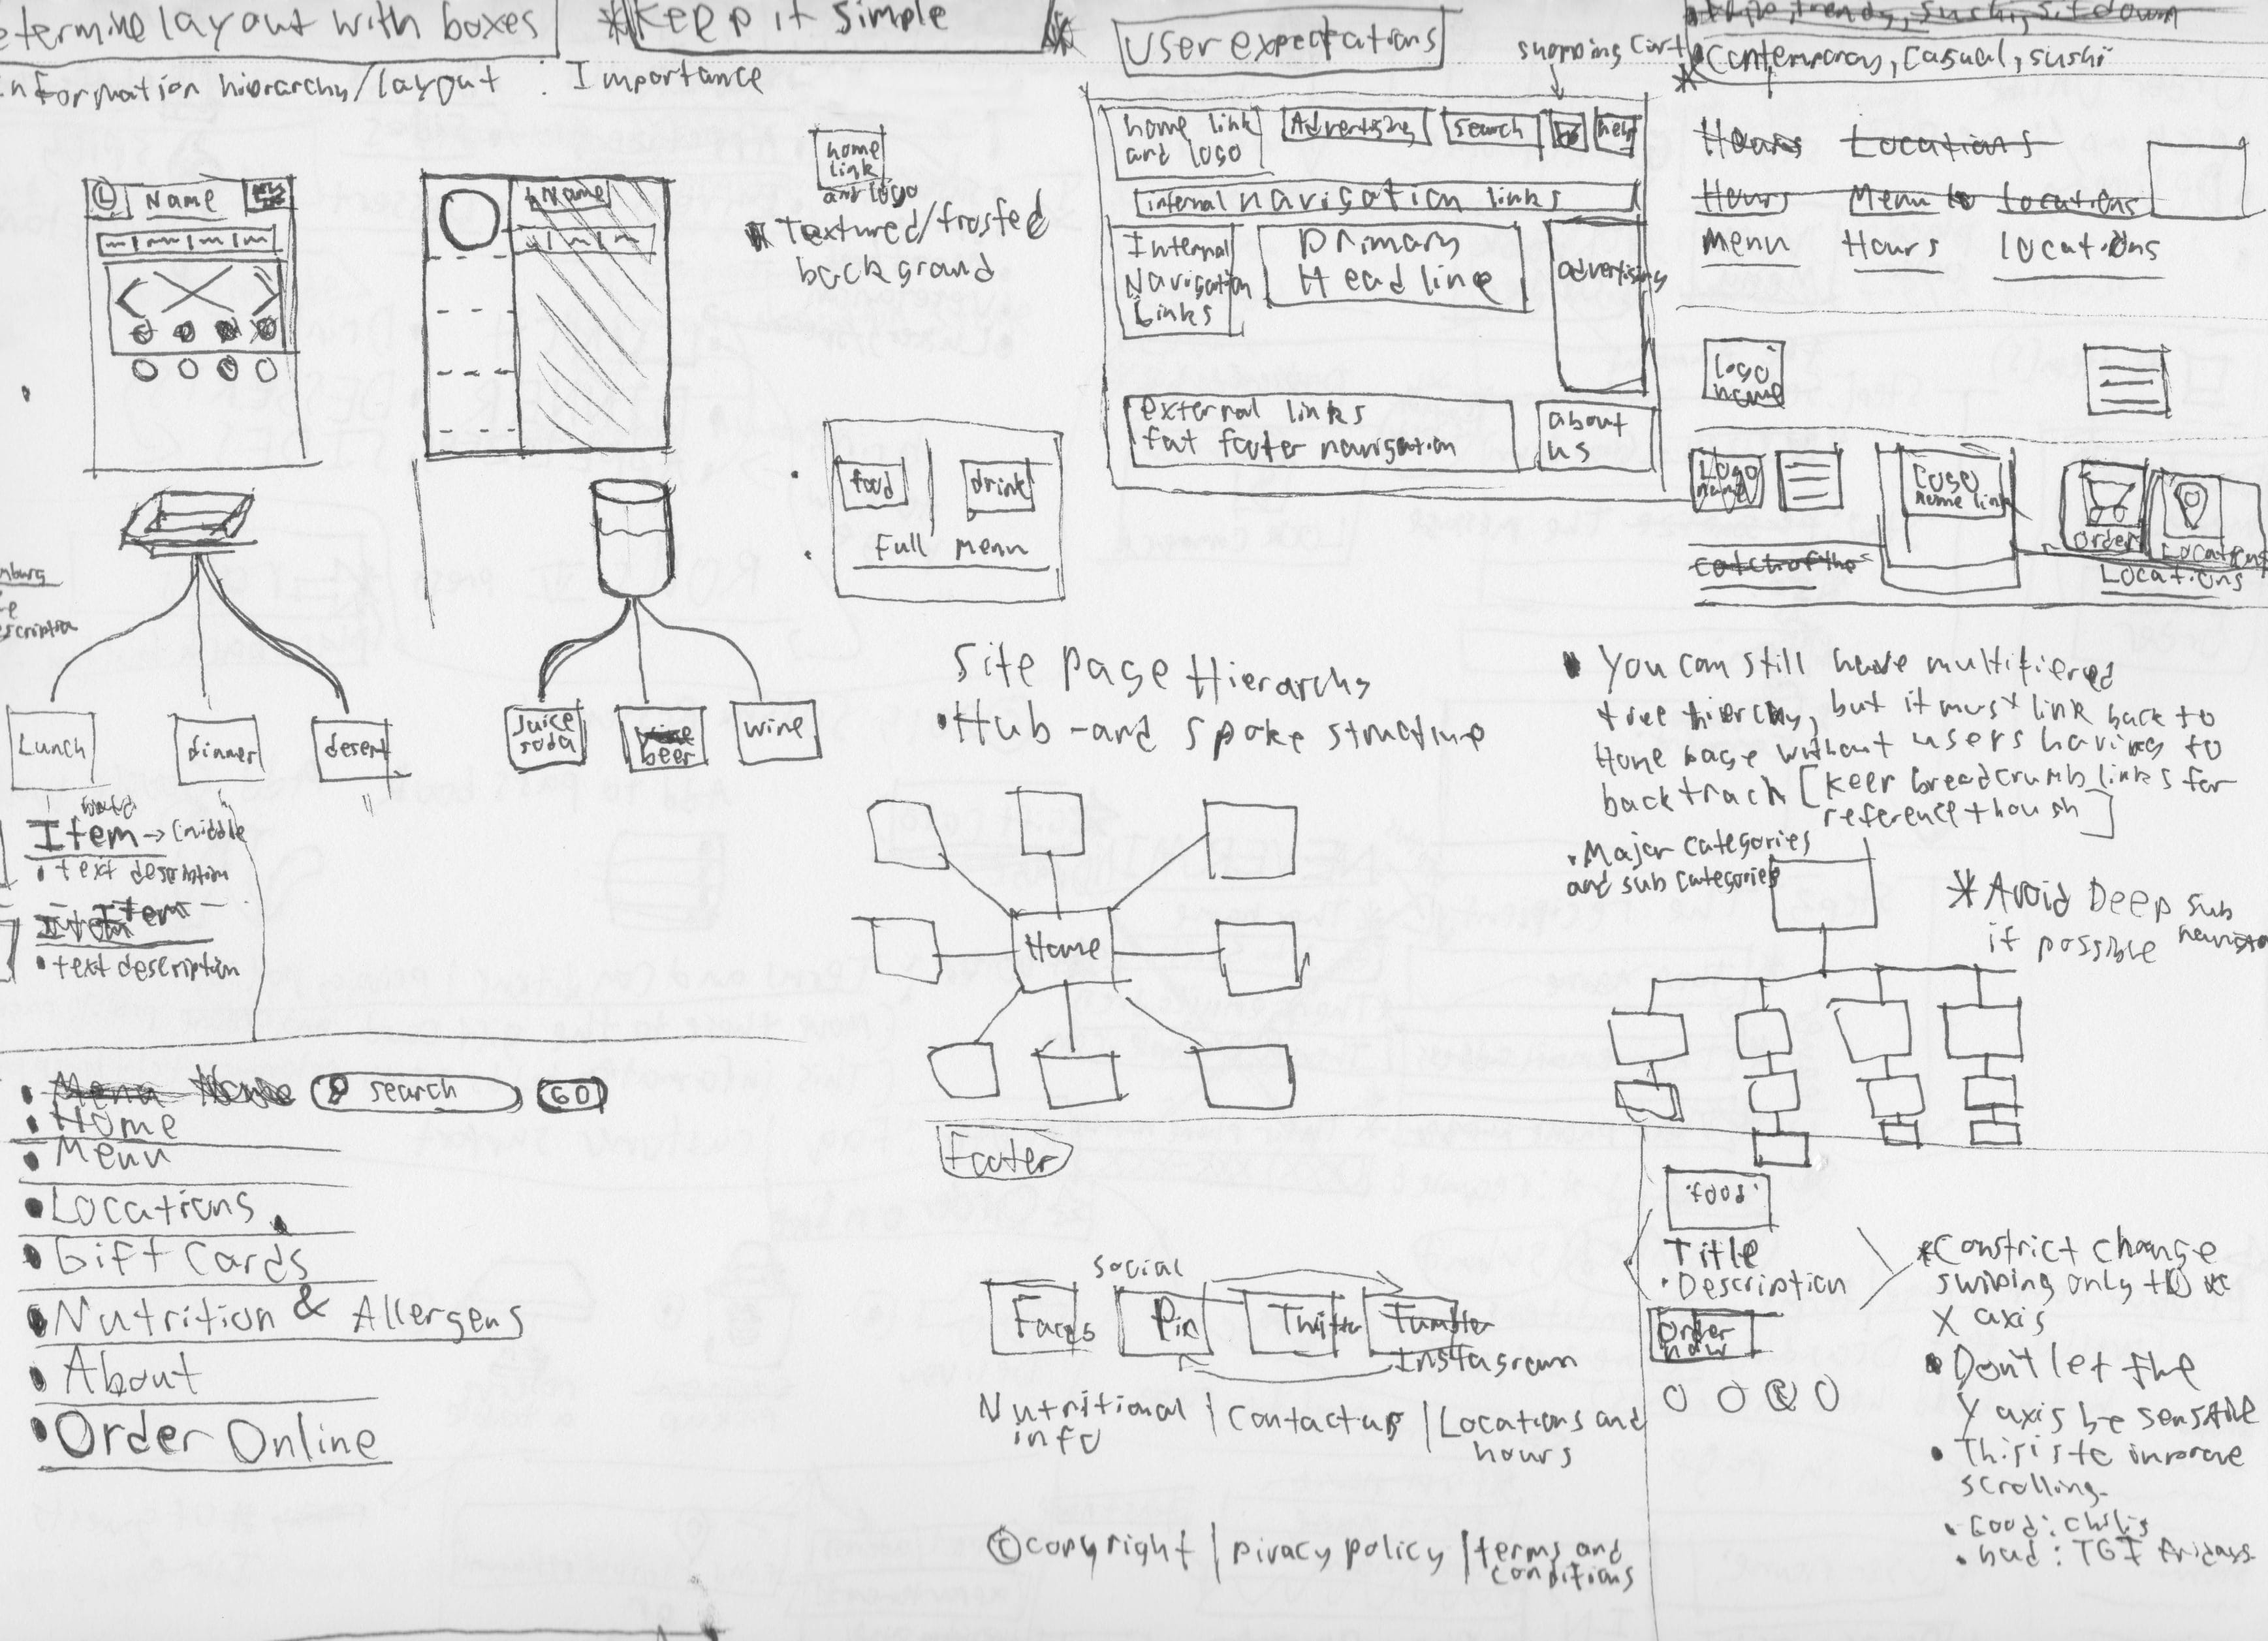 etermine layout with boxes
*Keep it simple
User expectations
shopping cart
nformation hierarchy/layout : Importance
Contemporary, casual, sushi
home link and logo
Textured/frosted
background
L
Name
Name
home link
and logo
Advertising
search
help
internal navigation links
Internal
Navigation
Links
Primary
Headline
advertising
external links
fat footer navigation
about
us
Hours Locations
Hours Menu Locations
Menu Hours Locations
logo
name
Logo
name
Logo
home link
Order
Locations
catch of the
Locations
food
drink
Full menu
escription
Lunch
dinner
desert
Juice
soda
beer
wine
Item → (middle
• text description
Item
• text description
Site Page Hierarchy
• Hub-and spoke structure
Home
• You can still have multitiered
tree hierchy, but it must link back to
Home page without users having to
backtrack [keep breadcrumb links for
reference though]
• Major categories
and sub categories
* Avoid Deep sub
if possible
• Menu Home
search
GO
• Home
• Menu
• Locations
• Gift Cards
• Nutrition & Allergens
• About
• Order Online
Footer
social
Faces
Pin
Twitter
Tumbler
Instagram
Nutritional
info
| Contact us
| Locations and
hours
© copyright | pivacy policy | terms and
conditions
'food'
Title
• Description
Order
now
*Constrict change
swiping only to
X axis
• Don't let the
Y axis be sensitive
• This is to improve
scrolling.
• Good: chilis
• bad: TGI fridays